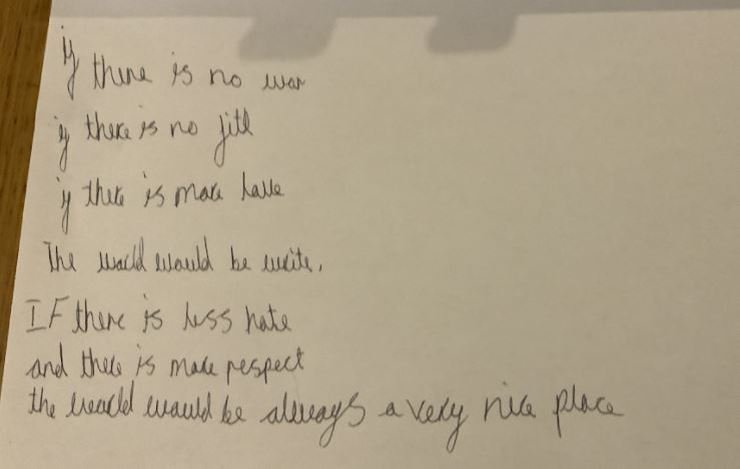 if there is no war
if there is no
if there is more love
The world would be
IF there is less hate
and there is more respect
the world would be always a very nice place